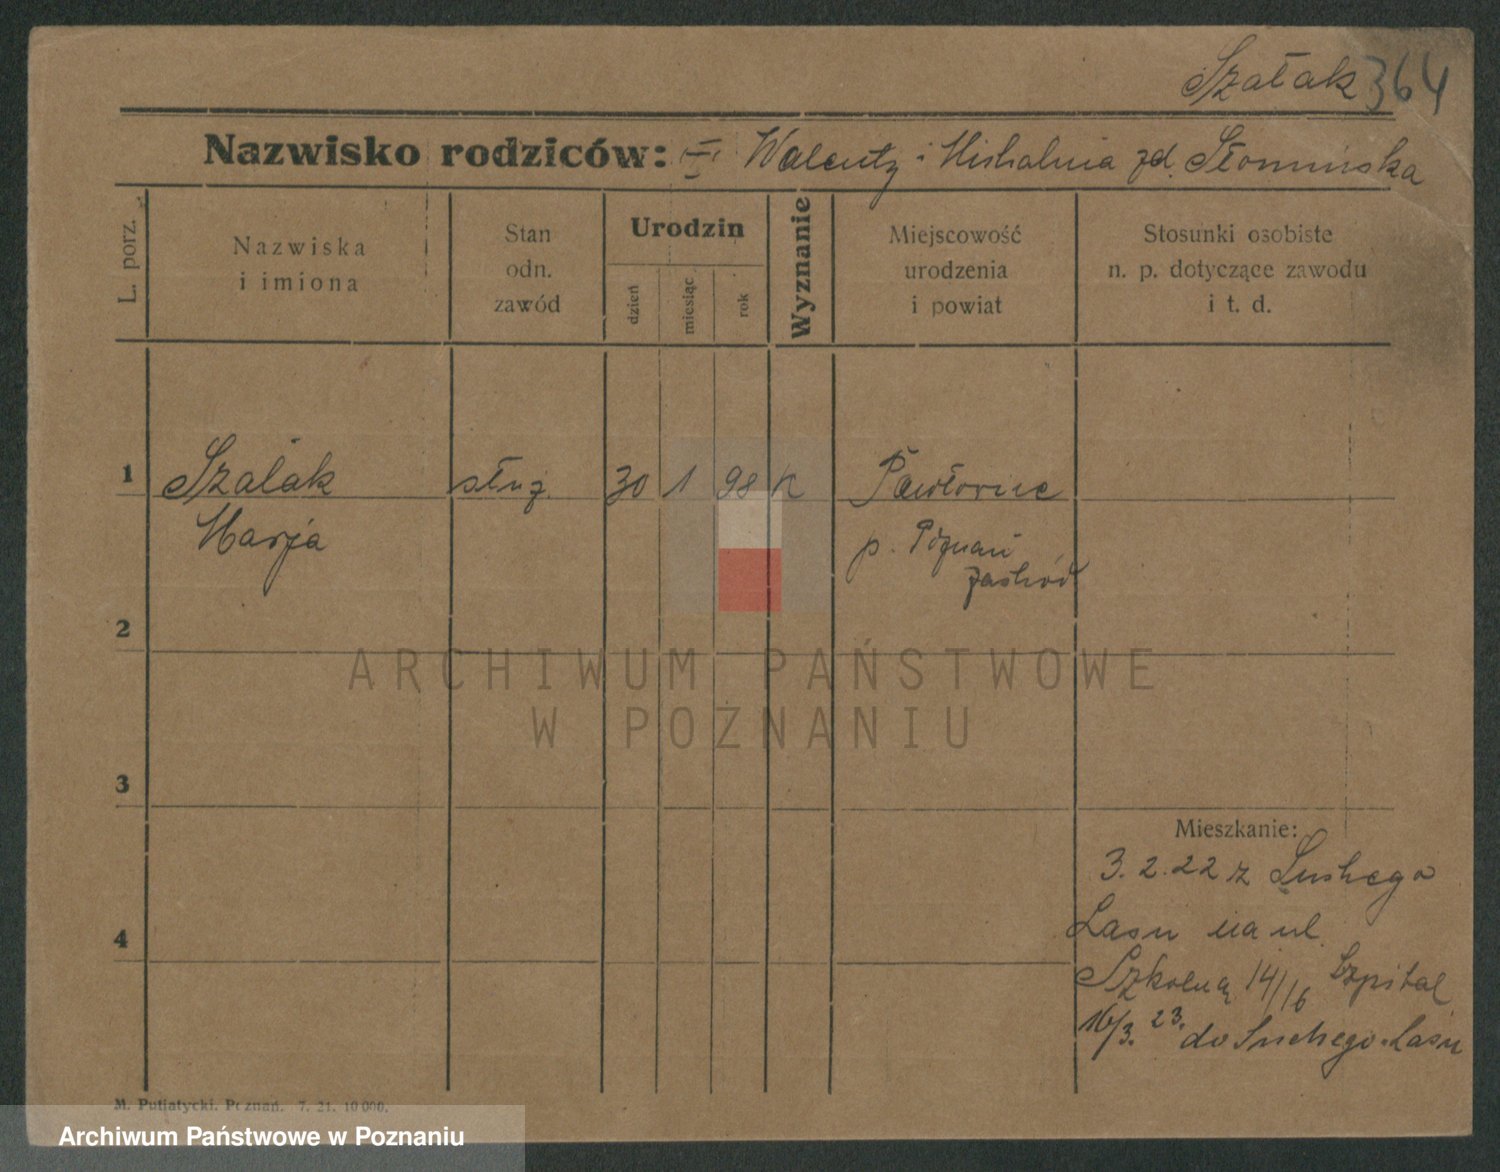 Szałak 364
Nazwisko rodziców: Walenty i Michalina zd. Słomińska
L. porz.
Nazwiska
i imiona
Stan
odn.
zawód
Urodzin
dzień
miesiąc
rok
Wyznanie
Miejscowość
urodzenia
i powiat
Stosunki osobiste
n. p. dotyczące zawodu
i t. d.
1 Szalak służ. 30 1 98 k Pawłowice
Marja p. Poznań
zachód
2
3
4
Mieszkanie:
3. 2. 22 z Suchego
Lasu na ul.
Szkolną 14/16 Szpital
16/3. 23. do Suchego-Lasu
M. Putiatycki. Poznań. 7. 21. 10 000.
ARCHIWUM PAŃSTWOWE
W POZNANIU
Archiwum Państwowe w Poznaniu